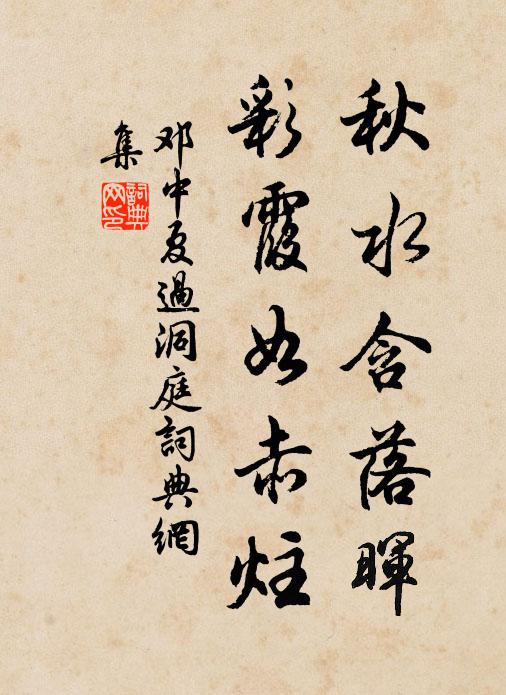 秋水含落暉
彩霞如赤炷
邓中夏過洞庭詞典網
集
詞典
网印